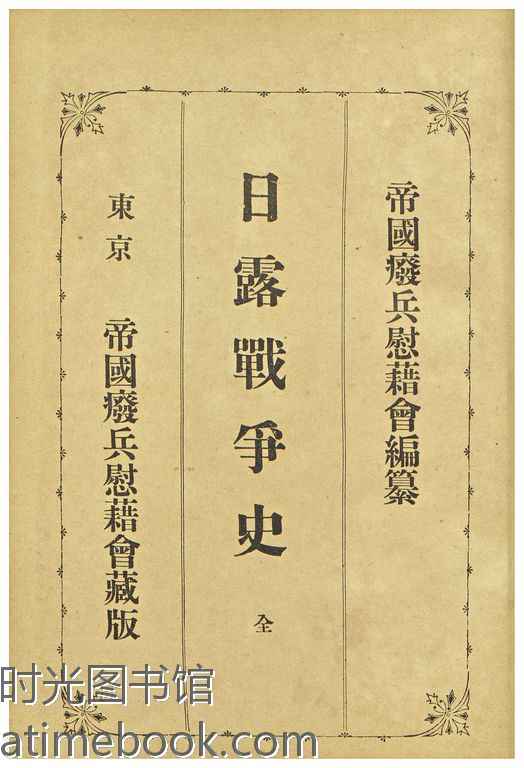 帝國癈兵慰藉會編纂
日露戰爭史 全
東京 帝國癈兵慰藉會藏版
时光图书馆
atimebook.com